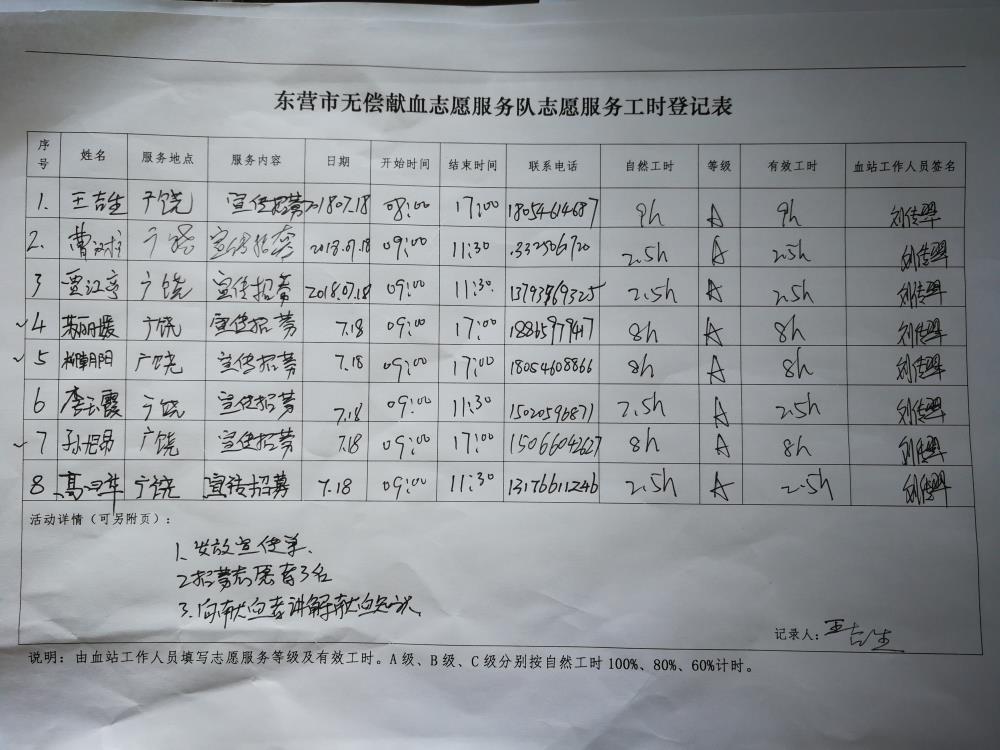 东营市无偿献血志愿服务队志愿服务工时登记表
序号 姓名 服务地点 服务内容 日期 开始时间 结束时间 联系电话 自然工时 等级 有效工时 血站工作人员签名
1. 王吉生 广饶 宣传招募 2018.07.18 08:00 17:00 18054614687 9h A 9h
2. 广饶 宣传招募 2018.07.18 09:00 11:30 2.5h A 2.5h
3 贾江亭 广饶 宣传招募 2018.07.18 09:00 11:30 13793969325 2.5h A 2.5h
4 广饶 宣传招募 7.18 09:00 17:00 18865979417 8h A 8h
5 柳朝阳 广饶 宣传招募 7.18 09:00 17:00 18054608866 8h A 8h
6 李玉霞 广饶 宣传招募 7.18 09:00 11:30 15020596871 2.5h A 2.5h
7 孙旭昂 广饶 宣传招募 7.18 09:00 17:00 15066042627 8h A 8h
8 广饶 宣传招募 7.18 09:00 11:30 13176611246 2.5h A 2.5h
活动详情（可另附页）：
1、发放宣传单、
2、招募志愿者3名
3、向献血者讲解献血知识、
记录人：王吉生
说明：由血站工作人员填写志愿服务等级及有效工时。A级、B级、C级分别按自然工时100%、80%、60%计时。